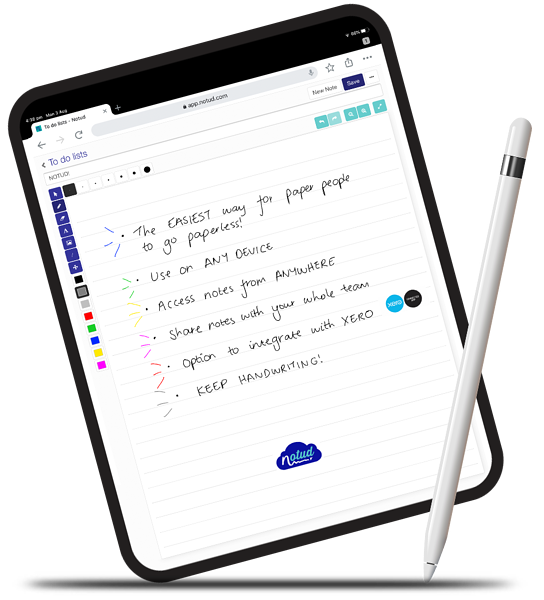 4:38 pm Mon 2 Aug
86%
To do lists - Notud
app.notud.com
To do lists
New Note
Save
NOTUD:
• The EASIEST way for paper people
to go paperless!
• Use on ANY DEVICE
• Access notes from ANYWHERE
• Share notes with your whole team
• Option to integrate with XERO
xero
• KEEP HANDWRITING!
notud